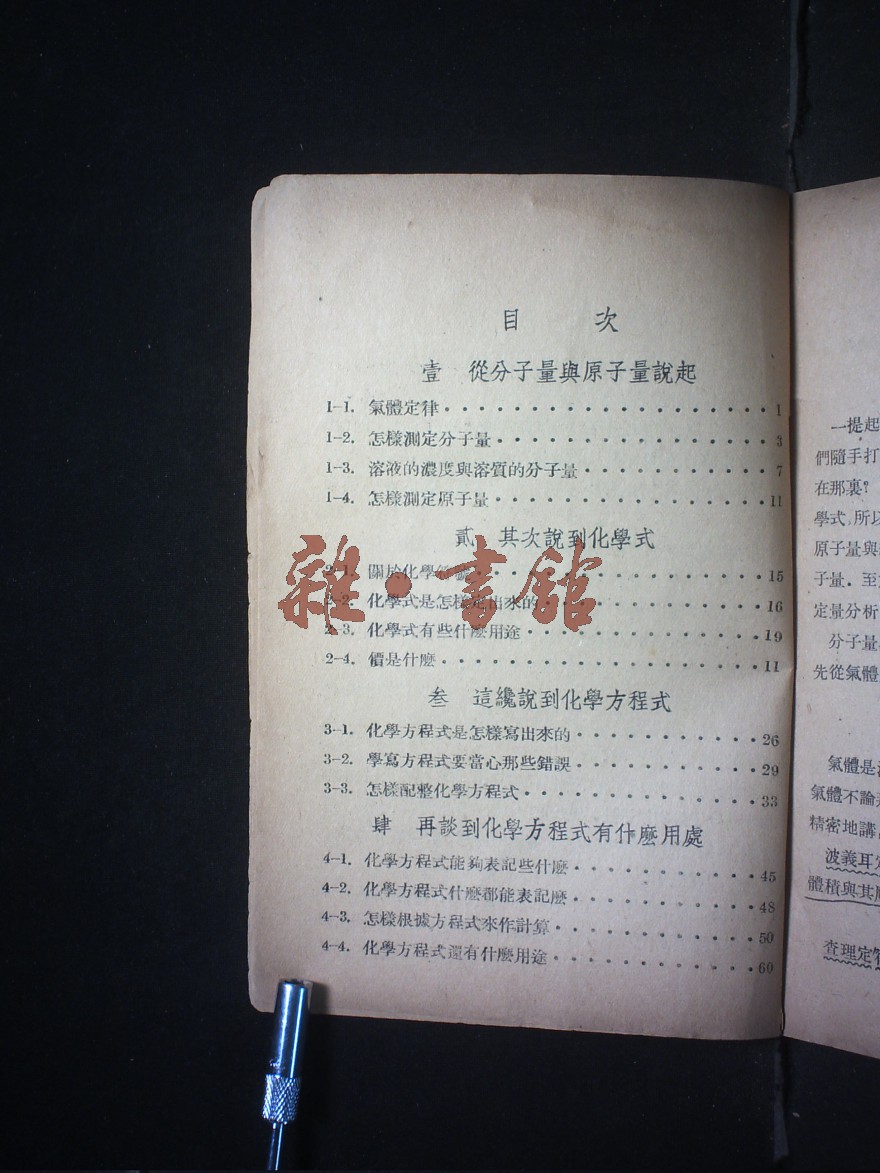 目 次
壹 從分子量與原子量說起
1-1. 氣體定律 1
1-2. 怎樣測定分子量 3
1-3. 溶液的濃度與溶質的分子量 7
1-4. 怎樣測定原子量 11
貳 其次說到化學式
2-1. 關於化學 15
2-2. 化學式是怎樣定出來的 16
2-3. 化學式有些什麽用途 19
2-4. 價是什麽 11
叁 這纔說到化學方程式
3-1. 化學方程式是怎樣寫出來的 26
3-2. 學寫方程式要當心那些錯誤 29
3-3. 怎樣配整化學方程式 33
肆 再談到化學方程式有什麽用處
4-1. 化學方程式能夠表記些什麽 45
4-2. 化學方程式什麽都能表記麽 48
4-3. 怎樣根據方程式來作計算 50
4-4. 化學方程式還有什麽用途 60
雜·書館
一提起
們隨手打
在那裏?
學式,所以
原子量與
子量.至
定量分析
分子量
先從氣體
氣體是
氣體不論
精密地講
波義耳定
體積與其
查理定